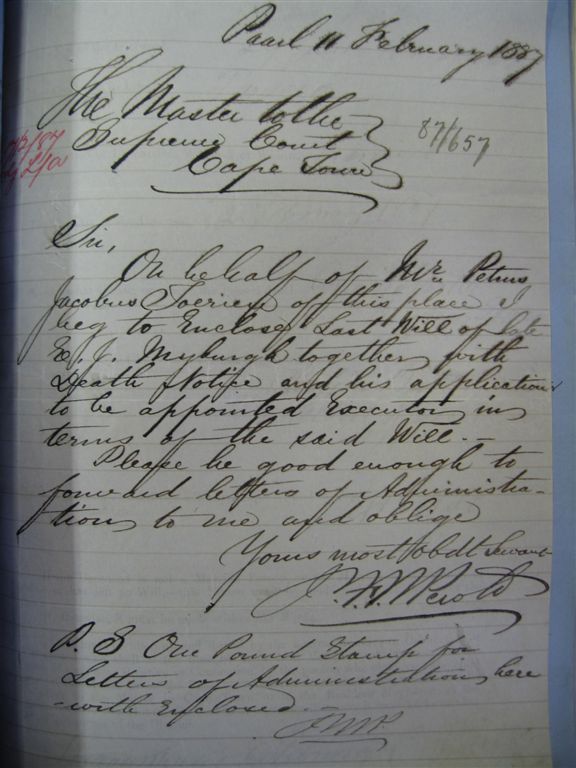 Paarl 11 February 1887
The Master to the
Supreme Court
Cape Town
87/657
Sir,
On behalf of Mr. Petrus
Jacobus Joerien of this place I
beg to Enclose Last Will of late
E. J. Myburgh together with
Death Notice and his application
to be appointed Executor in
terms of the said Will.-
Please be good enough to
forward letters of Administra-
tion to me and oblige
Yours most Obdt Servant
P.S One Pound Stamp for
Letters of Administration here
-with Enclosed